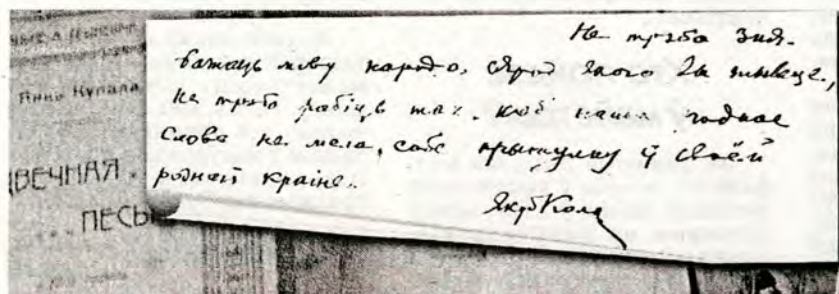 Янка Купала
ДВЕЧНАЯ
ПЕСЬ
Не трэба зня-
важаць мову народа, сярод якога Вы жывеце,
не трэба рабіць так, каб наша роднае
слова не мела сабе прытулку ў сваёй
роднай краіне.
Якуб Кола